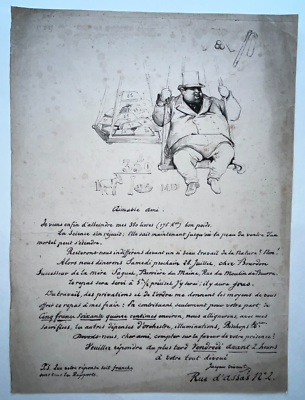 Aimable ami.
Je viens enfin d'atteindre mes 350 livres (175 Kos) bon poids.
La Science s'en réjouit; Elle sait maintenant jusqu'où la peau du ventre d'un
mortel peut s'étendre.
Resterons-nous indifférents devant un si beau travail de la Nature? Non!
Alors nous dînerons Samedi prochain 22 Juillet, chez Bourdon,
Successeur de la Mère Saguet, Barrière du Maine, Rue du Moulin de Beurre.
Le repas sera servi à 5 h 1/2 précises. J'y serai; il y aura gras.
Du travail, des privations et de l'ordre me donnent les moyens de vous
offrir ce repas à mes frais; la contribuant seulement pour votre part de
Cinq francs soixante quinze centimes environ, nous allègerons, avec mes
sacrifices, les autres dépenses d'orchestre, illuminations,
Pouvez-vous, cher ami, compter sur la faveur de votre présence?
Veuillez répondre au plus tard Vendredi avant 2 heures
à votre tout dévoué
P.S. Que votre réponse soit franche
sous tous les Rapports.
Rue d'Assas No 2.